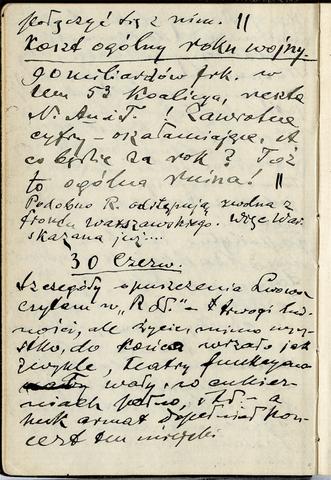 połączyć się z nim. ||
Koszt ogólny roku wojny.
90 miliardów frk. w
tem 53 koalicya, reszta
N. Au i T. ! Zawrotne
cyfry – oszałamiające. A
co będzie za rok? Toż
to ogólna ruina! ||
Podobno R. odstępują zwolna z
frontu warszawskiego. Więc War.
skazana już....
30 Czerw.
Szczegóły opuszczenia Lwowa
czytam w „R – trwogi lud-
ności, ale życie, mimo wszy-
stko, do końca wrzało jak
zwykle, teatry funkcyono-
wały, w cukier-
niach pełno, itd. – a
huk armat dopełniał kon-
cert ten